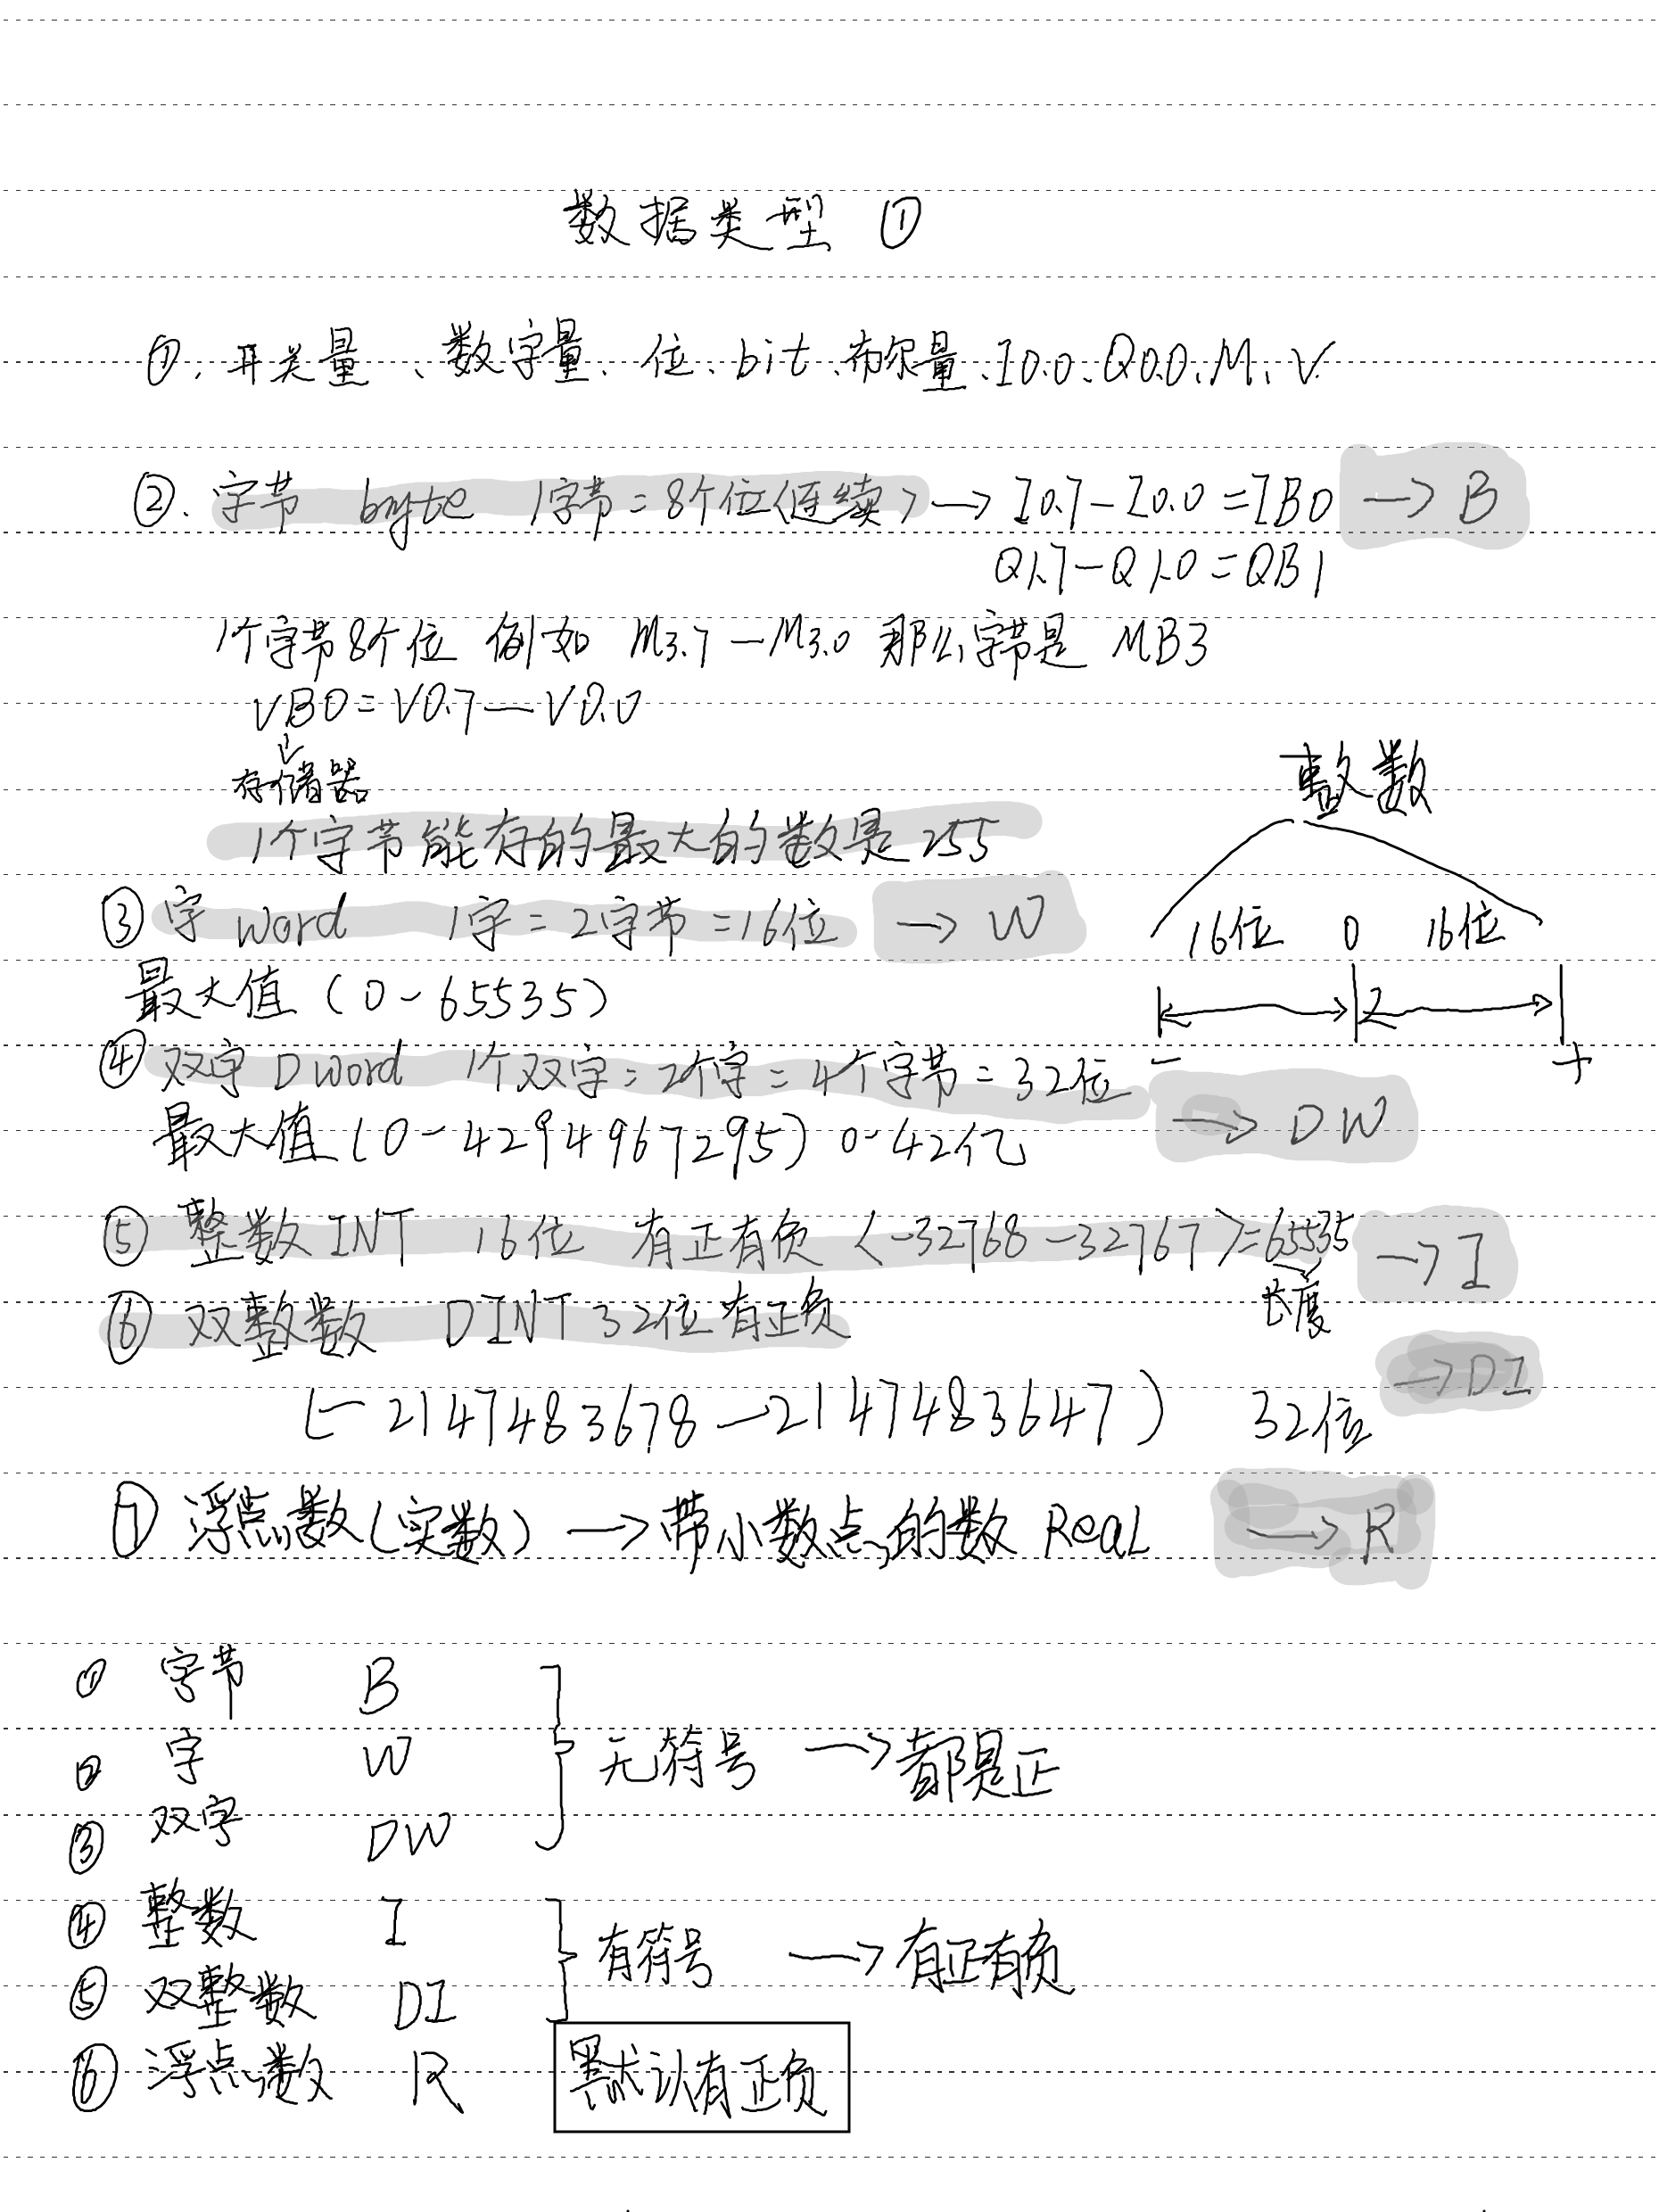 数据类型 ①
①、开关量、数字量、位、bit、布尔量、I0.0、Q0.0、M、V
②、字节 byte 1字节=8个位(连续)→I0.7-I0.0=IB0 → B
Q1.7-Q1.0=QB1
1个字节8个位 例如 M3.7-M3.0 那么字节是 MB3
VB0=V0.7-V0.0
↓
存储器
整数
1个字节能存的最大的数是255
③ 字 Word 1字=2字节=16位 → W
16位 0 16位
最大值(0-65535)
- +
④ 双字 DWord 1个双字=2个字=4个字节=32位
最大值(0-4294967295) 0-42亿 → DW
⑤ 整数 INT 16位 有正有负 (-32768-32767)=65535 → I
长度
⑥ 双整数 DINT 32位有正负
→DI
(-2147483678-2147483647) 32位
⑦ 浮点数(实数)→带小数点的数 Real → R
① 字节 B
② 字 W 无符号 → 都是正
③ 双字 DW
④ 整数 I
有符号 → 有正有负
⑤ 双整数 DI
⑥ 浮点数 R 默认有正负